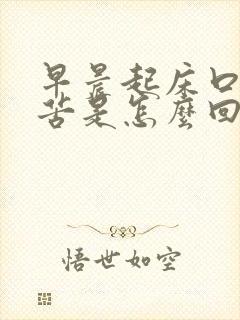 早晨起床口
苦是怎麼回
悟世如空